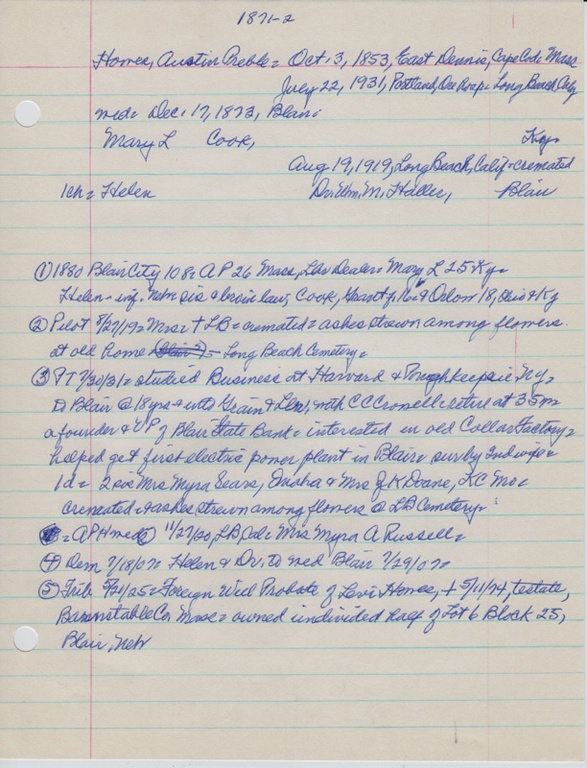 1871-2
Howes, Austin Preble = Oct. 3, 1853, East Dennis, Cape Cod, Mass
July 22, 1931, Portland, Ore Rsep = Long Beach City
med = Dec. 17, 1873, Blair =
Mary L Cook, Ky =
Aug 19, 1919, Long Beach, Calif = cremated
1ch = Helen Dr. Wm. M. Haller, Blair
① 1880 Blair City 108 = A P 26 Mass, Lbr Dealer = Mary L 25 Ky =
Helen - inf. Nebr sis & bro in law, Cook, Grant J. 16 & Orlon 18, Ohio & Ky
② Pilot 8/27/19 = Mrs = + LB = cremated = ashes strewn among flowers
at old home = Long Beach Cemetery =
③ PT 7/30/31 = studied Business at Harvard & Poughkeepsie N.Y. =
to Blair @ 18 yrs = into Grain & Lbr, with CC Crowell = retire at 35 =
a founder & VP of Blair State Bank = interested in old Collar Factory =
helped get first electric power plant in Blair = surv by 2nd wife =
1d = 2 sis Mrs Myra Sears, Omaha & Mrs J K Doane, KC Mo =
cremated = ashes strewn among flowers @ LB Cemetery =
= APH med 11/27/20, LB Cal = Mrs Myra A Russell =
④ Dem 7/18/07 = Helen & Dr. to wed Blair 7/29/07 =
⑤ Trib 5/21/25 = Foreign Will Probate of Levi Howes, + 5/11/74, testate,
Barnstable Co. Mass = owned undivided half of Lot 6 Block 25,
Blair, Nebr